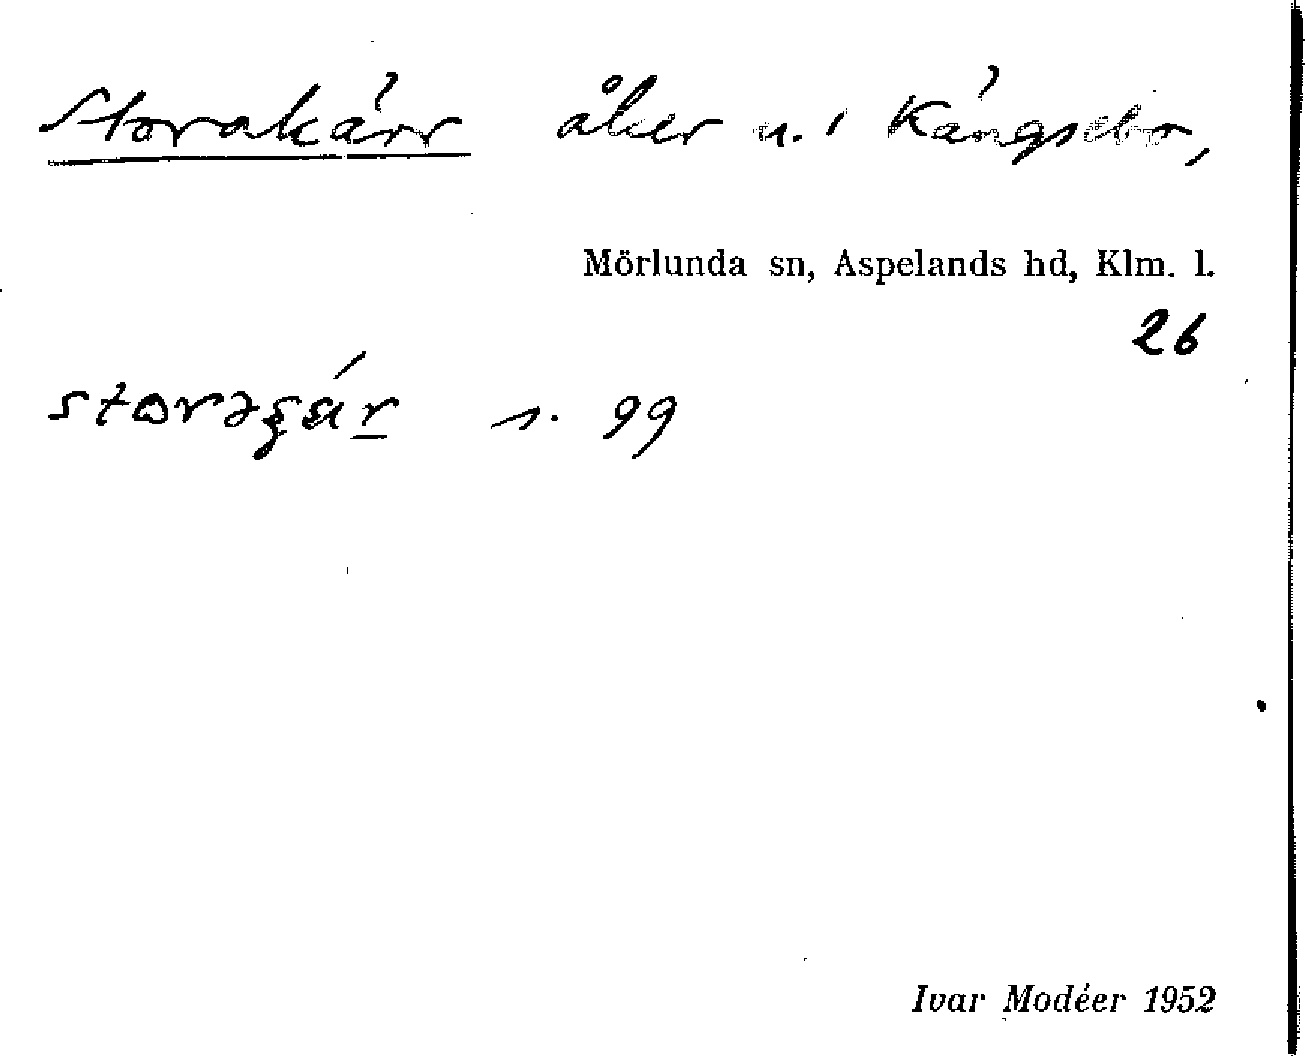 Storakärr åker u. i Kängsebo,
Mörlunda sn, Aspelands hd, Klm. l.
26
s. 99
Ivar Modéer 1952